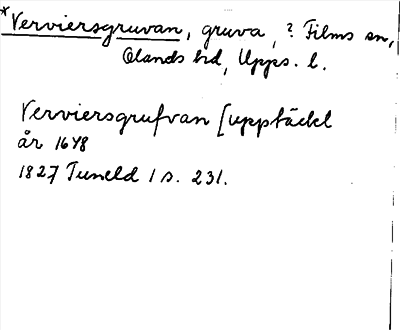 *Verviersgruvan, gruva, ? Films sn,
Olands hd, Upps. l.
Verviersgrufvan [upptäckt
år 1648
1827 Tuneld 1 s. 231.